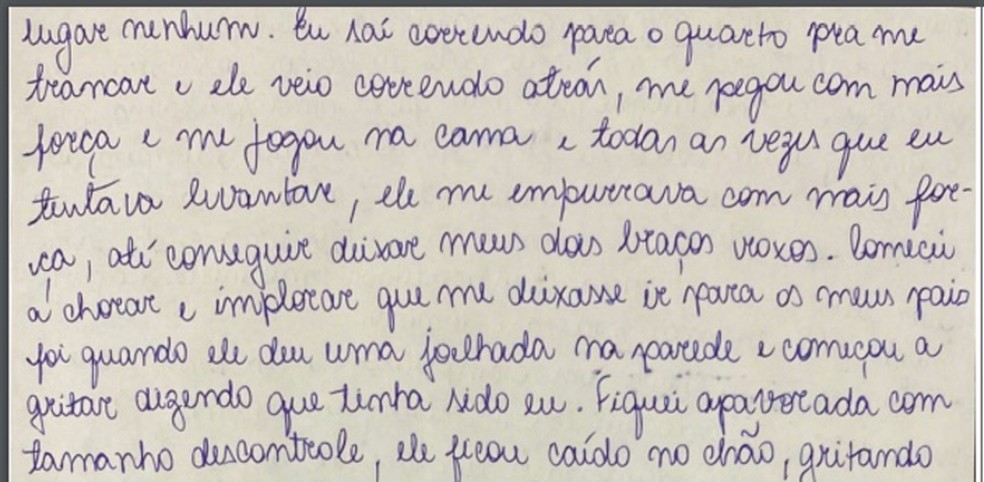 lugar nenhum. Eu saí correndo para o quarto pra me
trancar e ele veio correndo atrás, me pegou com mais
força e me jogou na cama e todas as vezes que eu
tentava levantar, ele me empurrava com mais for-
ça, até conseguir deixar meus dois braços roxos. Comecei
a chorar e implorar que me deixasse ir para os meus pais
foi quando ele deu uma joelhada na parede e começou a
gritar dizendo que tinha sido eu. Fiquei apavorada com
tamanho descontrole, ele ficou caído no chão, gritando